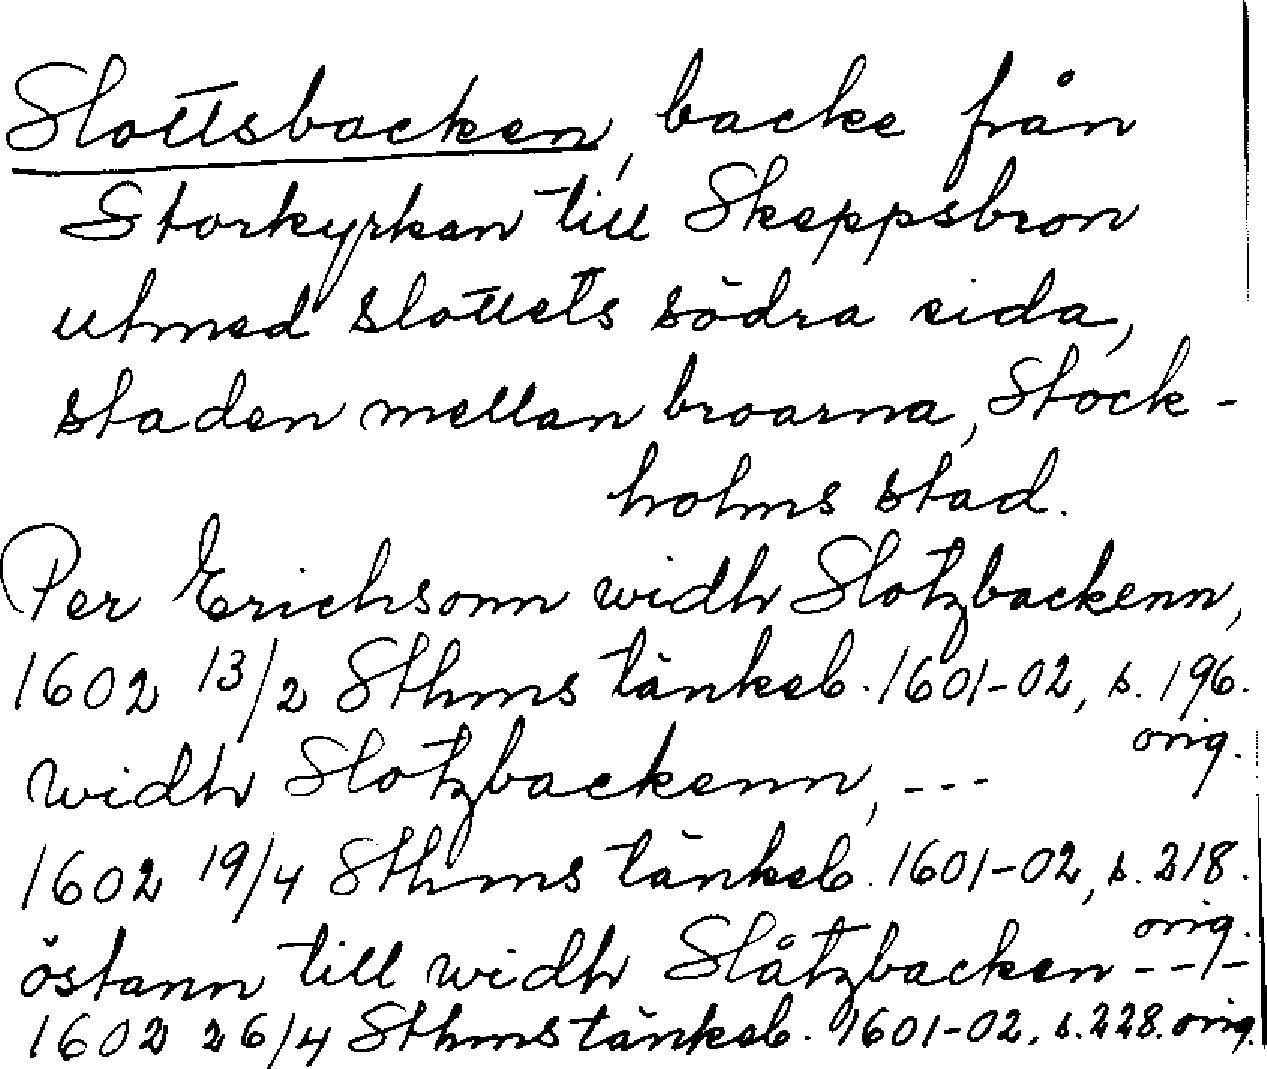 Slottsbacken, backe från
Storkyrkan till Skeppsbron
utmed slottets södra sida,
staden mellan broarna, Stock-
holms stad.
Per Erichsonn widh Slotzbackenn,
1602 13/2 Sthms tänkeb. 1601-02, s. 196.
orig.
widh Slotzbackenn, ---
1602 19/4 Sthms tänkeb. 1601-02, s. 218.
orig.
östann till widh Slåtzbacken ---
1602 26/4 Sthms tänkeb. 1601-02. s. 228. orig.